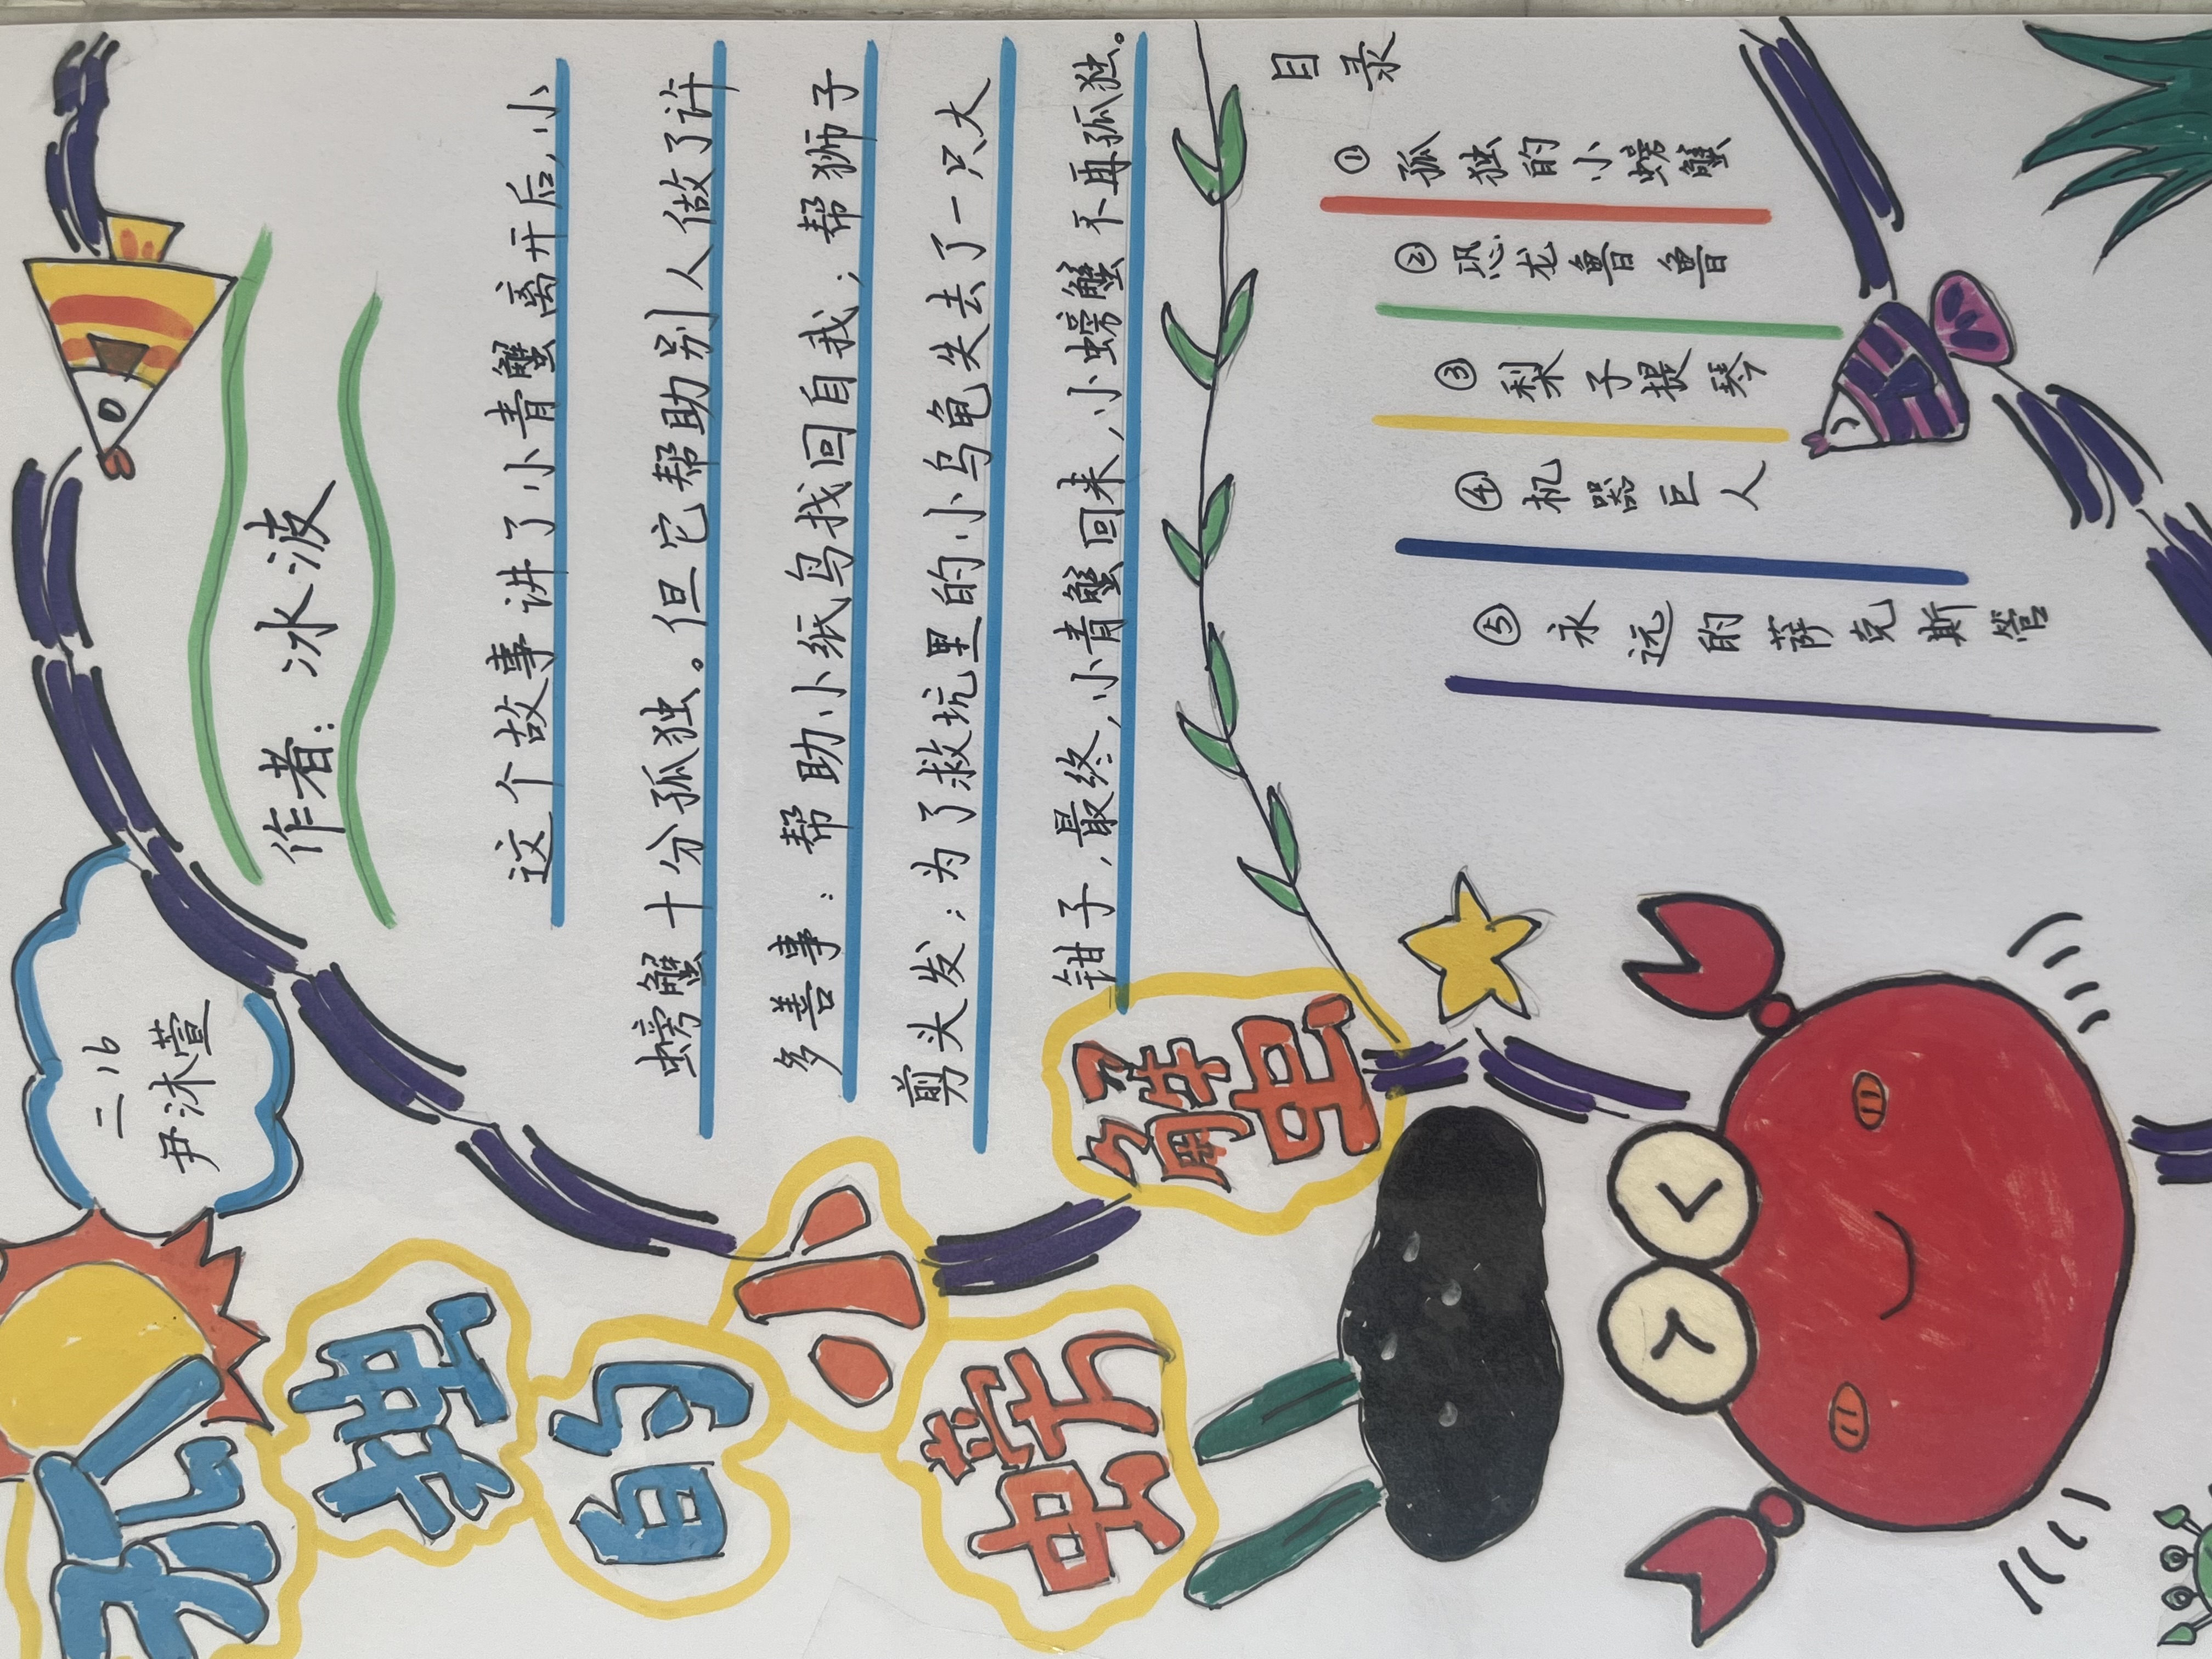 孤独的小螃蟹
二.16
尹沐萱
作者：冰波
这个故事讲了小青蟹离开后，小
螃蟹十分孤独。但它帮助别人做了许
多善事：帮助小纸鸟找回自我；帮狮子
剪头发；为了救坑里的小乌龟失去了一只大
钳子，最终，小青蟹回来，小螃蟹不再孤独。
目录
①孤独的小螃蟹
②恐龙鲁鲁
③梨子提琴
④机器巨人
⑤永远的萨克斯管